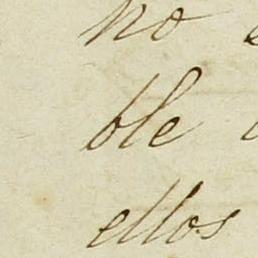 no
ble
ellos